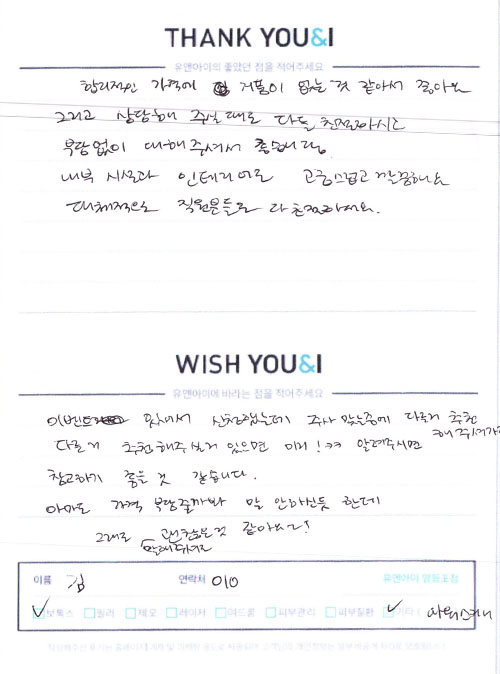 THANK YOU&I
유앤아이의 좋았던 점을 적어주세요
합리적인 가격에 거품이 없는 것 같아서 좋아요
그리고 상담해 주실 때도 다들 친절하시고
부담없이 대해주셔서 좋습니다.
내부 시설과 인테리어도 고급스럽고 깔끔해요
대체적으로 직원분들도 다 친절하세요.
WISH YOU&I
유앤아이에 바라는 점을 적어주세요
이벤트 있어서 신청했는데 주사 맞는중에 다른거 추천
다른거 추천해주실거 있으면 미리!ㅋㅋ 알려주시면
참고하기 좋을 것 같습니다.
아마도 가격 부담줄까봐 말 안하신듯 한데
그래도 괜찮을것 같아요~!
말해주셔도
이름 김 연락처 010 유앤아이
보톡스 필러 제모 레이저 여드름 피부관리 피부질환 기타